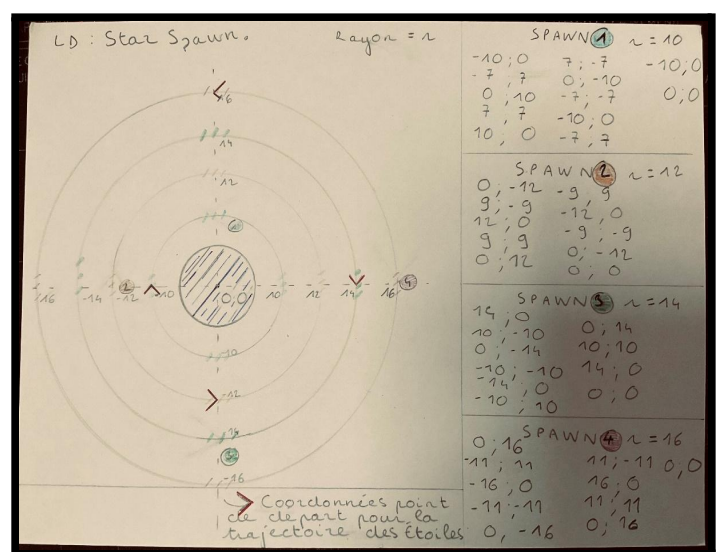 LD : Star Spawn.
Rayon = r
16
14
12
10
-16 -14 -12 -10 0,0 10 12 14 16
2
4
-10
-12
-14
3
-16
> Coordonnées point
de départ pour la
trajectoire des Étoiles
SPAWN 1 r = 10
-10 ; 0 7 ; -7 -10 ; 0
-7 , 7 0 ; -10 0 ; 0
0 ; 10 -7 ; -7
7 , 7 -10 ; 0
10 ; 0 -7 ; 7
SPAWN 2 r = 12
0 ; -12 -9 , 9
9 ; -9 -12 , 0
12 ; 0 -9 ; -9
9 ; 9 0 ; -12
0 ; 12 0 ; 0
SPAWN 3 r = 14
14 ; 0 0 ; 14
10 ; -10 10 ; 10
0 ; -14 14 ; 0
-10 ; -10 0 ; 0
-14 ; 0
-10 ; 10
SPAWN 4 r = 16
0 ; 16 11 ; -11 0 ; 0
-11 ; 11 16 ; 0
-16 ; 0 11 ; 11
-11 ; -11 0 ; 16
0 ; -16